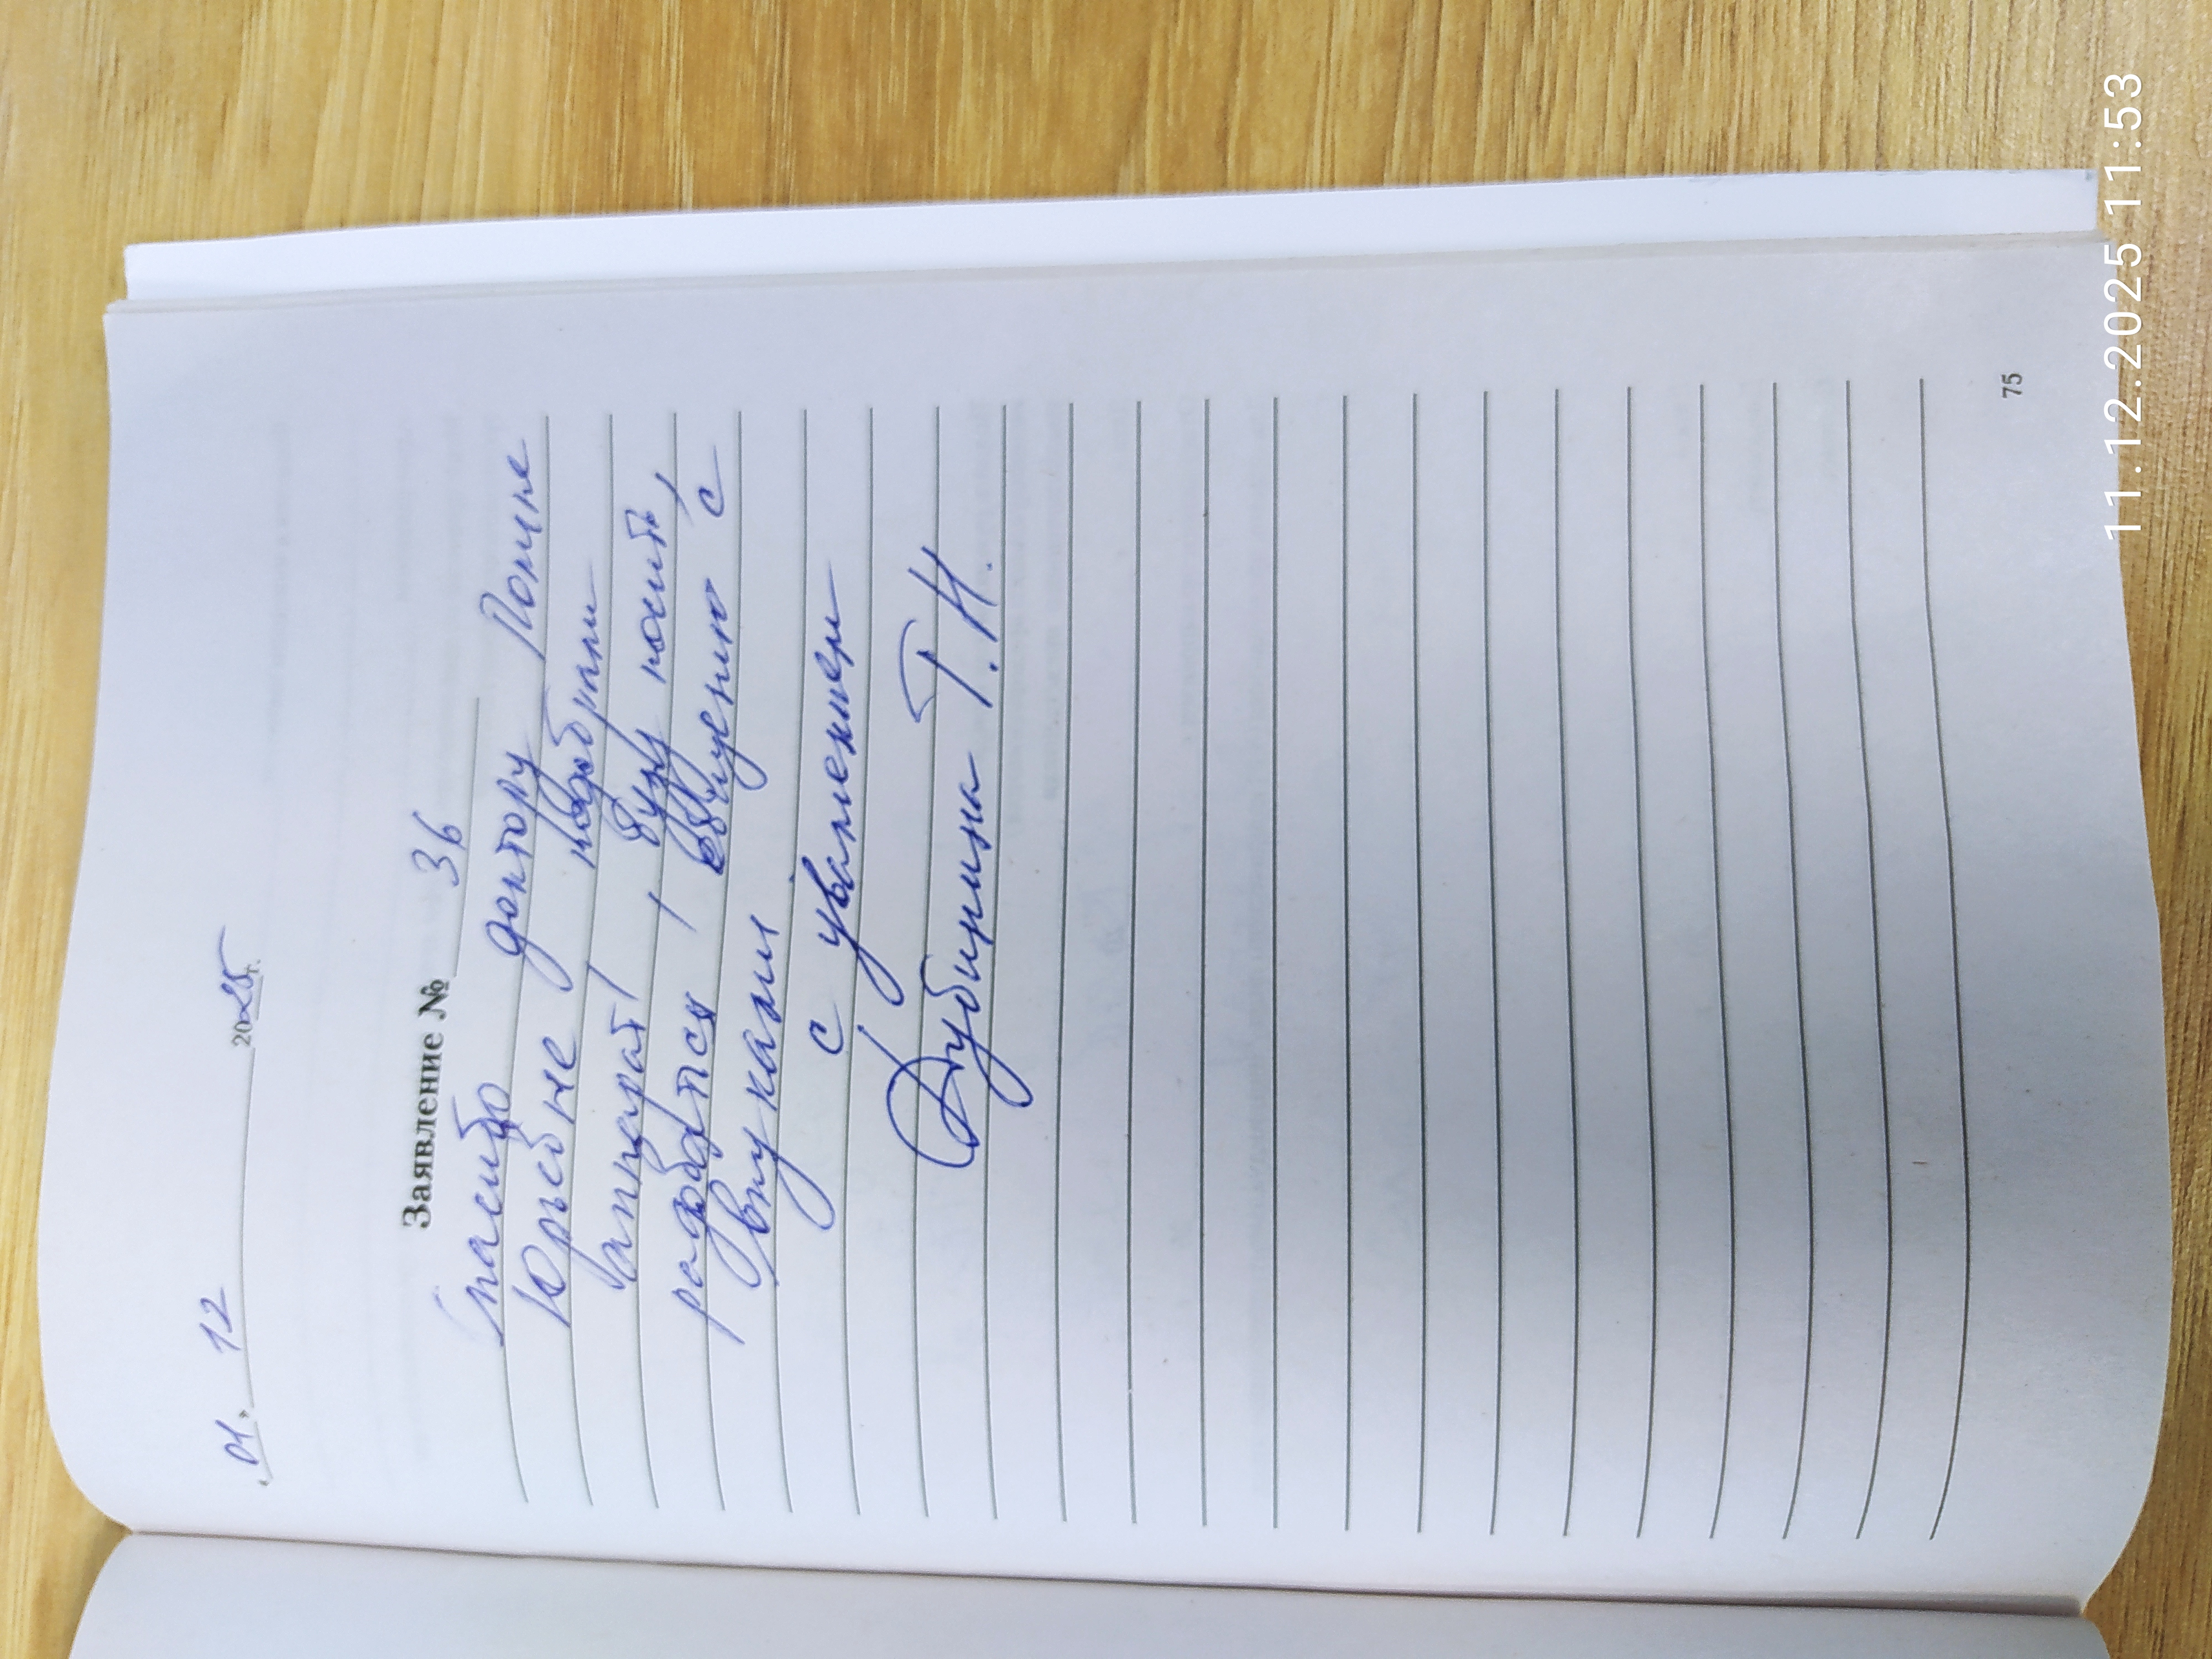 «01» 12 2025 г.
Заявление № 36
Спасибо доктору Полине
Юрьевне подобрали
аппарат, буду носить,
радоваться, общению с
внуками
с уважением
Дубинина Т.Н.
75
11.12.2025 11:53